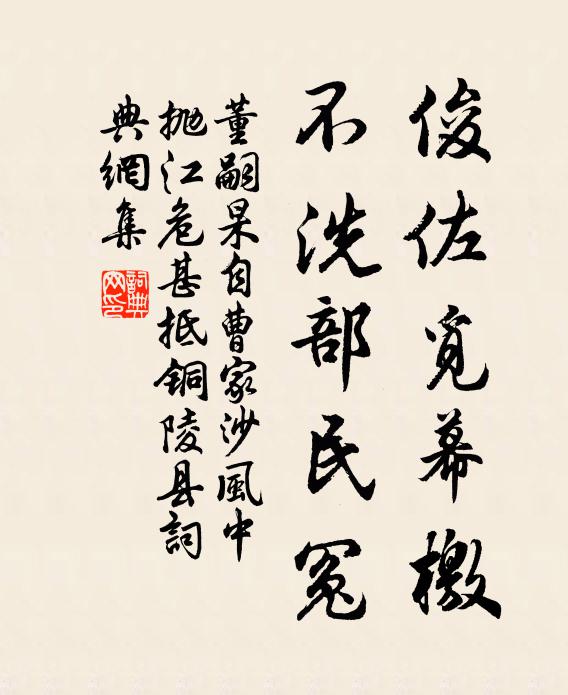 俊佐覓幕檄
不洗部民冤
董嗣杲自曹家沙風中
抛江危甚抵銅陵县詞
典網集
詞典網印